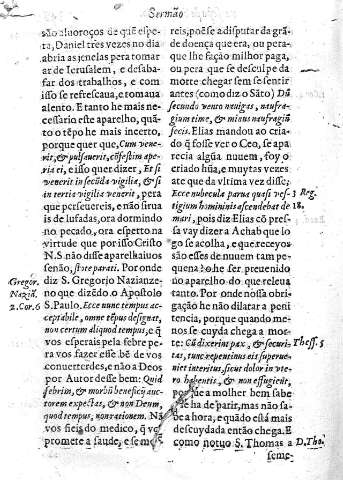 Sermão
são aluoroços de quẽ espe-
ra, Daniel tres vezes no dia
abria as janelas pera tomar
ar de Ierusalem, e desaba-
far dos trabalhos, e com
isso se refrescaua, e tomaua
alento. E tanto he mais ne-
cessario este aparelho, quã-
to o tẽpo he mais incerto,
porque quer que, Cum vene-
rit, & pulsauerit, cõfestim ape-
riāt ei, e isso quer dizer, Et si
venerit in secũda vigilia, & si
in tertia vigilia venerit, pera
que perseuereis, e não sirua
is de lufadas, ora dormindo
no pecado, ora esperto na
virtude que por isso Cristo
N.S. não disse aparelhaiuos
senão, stote parati. Por onde
diz S. Gregorio Nazianze-
no que dizẽdo o Apostolo
S. Paulo. Ecce nunc tempus ac-
ceptabile, omne tẽpus designat,
non certum aliquod tempus, e q̃
vos esperais pela febre pe-
ra vos fazer esse bẽ de vos
conuerterdes, e não a Deos
por Autor desse bem: Quid
febrim, & morbũ beneficij auc-
torem expectas, & non Deum,
quod tempus, non rationem. Nã
vos fieis do medico, q̃ vos
promete a saude, e se mor-
Gregor.
Naziã.
2. Cor. 6
reis, poẽse a disputar da grã-
de doença que era, ou pera-
que lhe façáo milhor paga,
ou pera que se desculpe da
morte chegar sem se sentir
antes (como diz o Sãto) Dũ
secundo vento nauigas, naufra-
gium time, & minus naufragiũ
feceis. Elias mandou ao cria-
do q̃ fosse ver o Ceo, se apa-
recia algũa nuuem, foy o
criado hũa, e muytas vezes
ate que da vltima vez disse;
Ecce nubecula parua quasi ves-
tigium homininis ascendebat de
mari, pois diz Elias cõ pres-
sa vay dizer a Achab que lo
go se acolha, e que receyos
são esses de nuuem tam pe-
quena? o he ser preuenido
no aparelho do que releua
tanto. Por onde nossa obri-
gação he não dilatar a peni
tencia, porque quando me-
nos se cuyda chega a mor-
te: Cũ dixerint pax, & securi-
tas, tunc repentinus eis superue-
niet interitus, sicut dolor in vte-
ro habentis, & non effugient,
porque a molher bem sabe
q̃ se ha de parir, mas não sa-
be a hora, e quãdo está mais
descuydada então chega. E
como notuo S. Thomas a
3 Reg.
18.
Thess. 5
D. Tho.
seme-